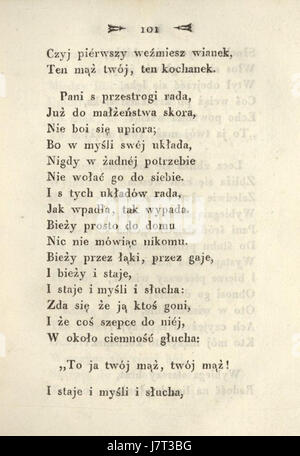 101
Czyj piérwszy weźmiesz wianek,
Ten mąż twój, ten kochanek.
Pani s przestrogi rada,
Już do małżeństwa skora,
Nie boi się upiora;
Bo w myśli swéj układa,
Nigdy w żadnéj potrzebie
Nie wołać go do siebie.
I s tych układów rada,
Jak wpadła, tak wypada.
Bieży prosto do domu
Nic nie mówiąc nikomu.
Bieży przez łąki, przez gaje,
I bieży i staje,
I staje i myśli i słucha:
Zda się że ją ktoś goni,
I że coś szepce do niéj,
W około ciemność głucha:
„To ja twój mąż, twój mąż!
I staje i myśli i słucha,
alamy
Image ID: J7T3BG
www.alamy.com